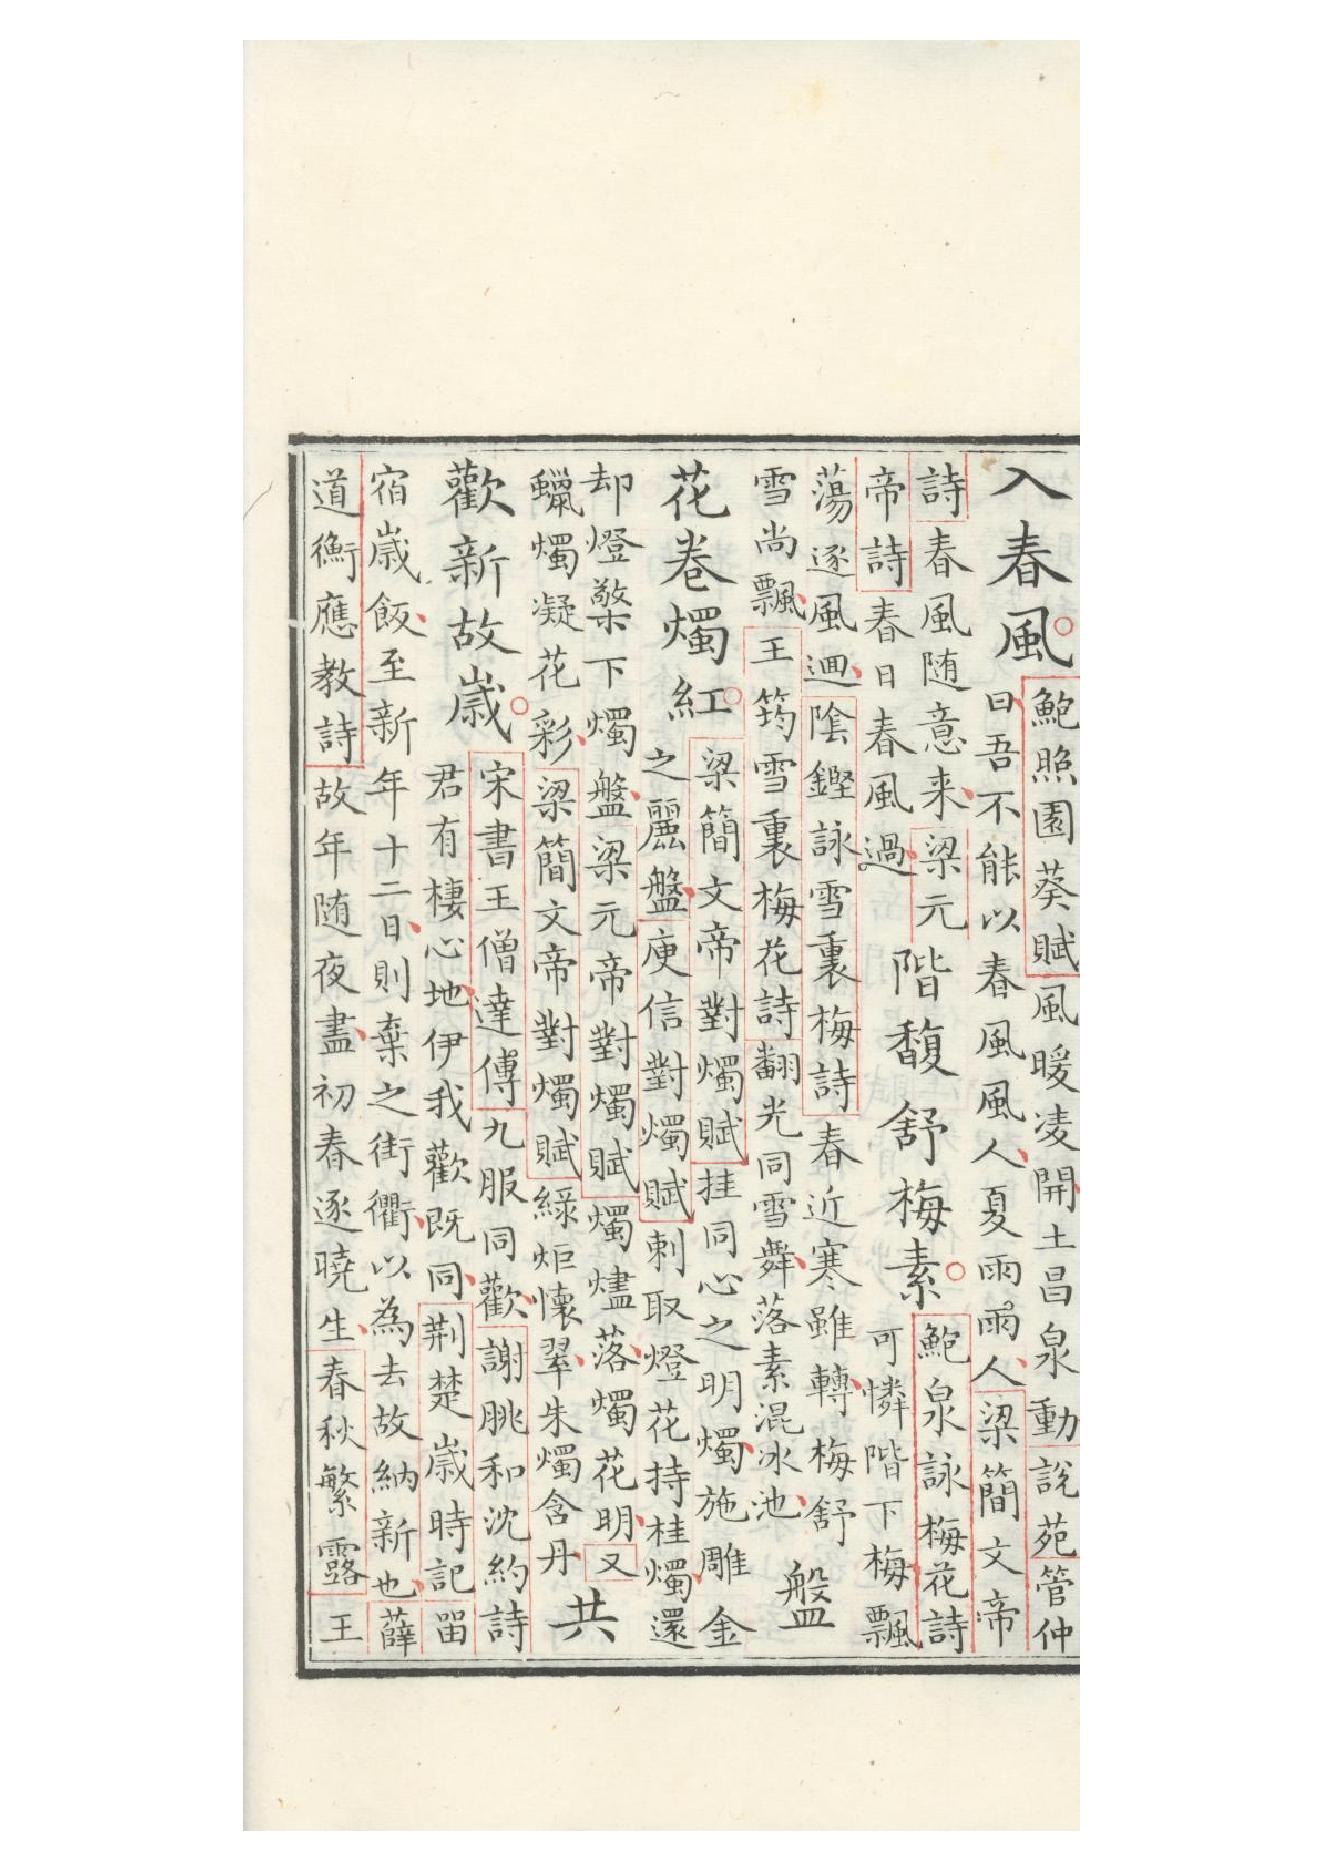 入春風
鮑照園葵賦風暖凌開土昌泉動說苑管仲
曰吾不能以春風風人夏雨雨人梁簡文帝
詩春風随意来梁元
帝詩春日春風過
階馥舒梅素
鮑泉詠梅花詩
可憐階下梅飄
蕩逐風迴陰鏗詠雪裏梅詩春近寒雖轉梅舒
雪尚飄王筠雪裏梅花詩翻光同雪舞落素混冰池
盤
花卷燭紅
梁簡文帝對燭賦挂同心之明燭施雕金
之麗盤庾信對燭賦刺取燈花持桂燭還
却燈檠下燭盤梁元帝對燭賦燭燼落燭花明又
蠟燭凝花彩梁簡文帝對燭賦綠炬懷翠朱燭含丹
共
歡新故歲
宋書王僧達傳九服同歡謝朓和沈約詩
君有棲心地伊我歡既同荆楚歲時記畱
宿歲飯至新年十二日則棄之街衢以為去故納新也薛
道衡應教詩故年随夜盡初春逐曉生春秋繁露王